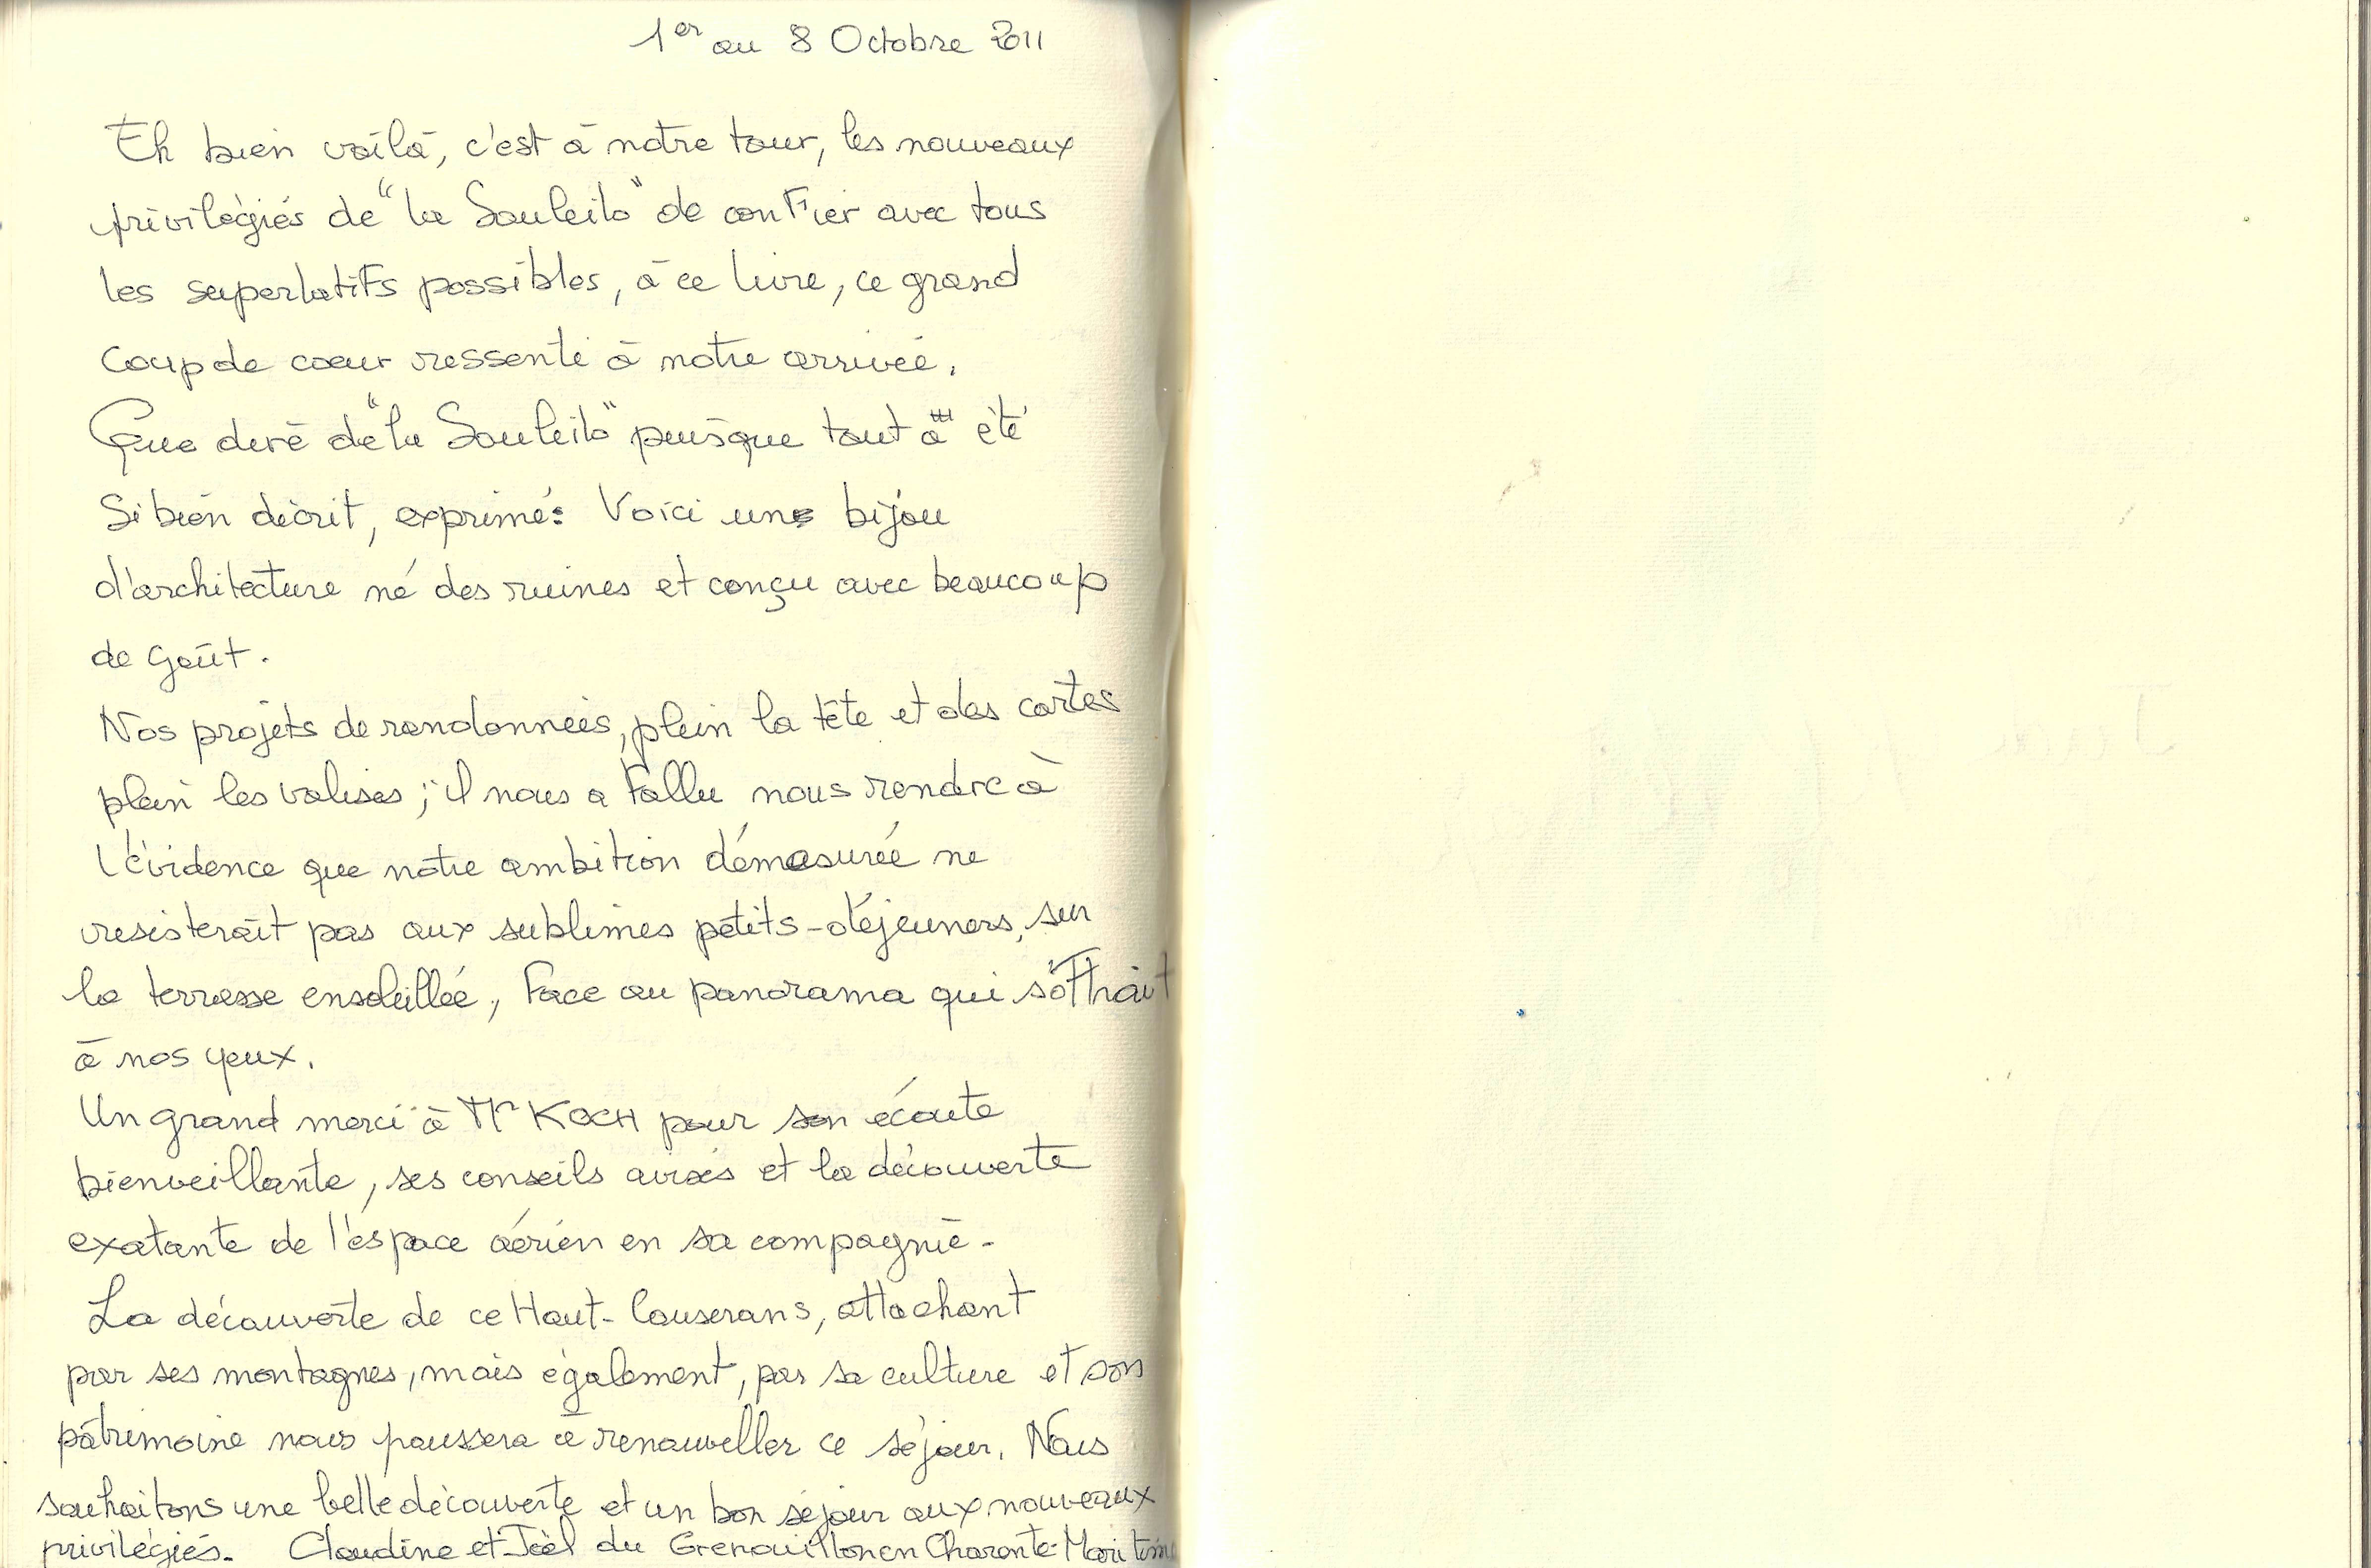 1er au 8 Octobre 2011
Eh bien voilà, c'est à notre tour, les nouveaux
privilégiés de "la Souleilo" de confier avec tous
les superlatifs possibles, à ce livre, ce grand
coup de cœur ressenti à notre arrivée.
Que dire de "la Souleilo" puisque tout a été
si bien décrit, exprimé: Voici une bijou
d'architecture né des ruines et conçu avec beaucoup
de goût.
Nos projets de randonnées, plein la tête et des cartes
plein les valises; il nous a fallu nous rendre à
l'évidence que notre ambition démesurée ne
resisterait pas aux sublimes petits-déjeuners, sur
la terrasse ensoleillée, face au panorama qui s'offrait
à nos yeux.
Un grand merci à Mr KOCH pour son écoute
bienveillante, ses conseils avisés et la découverte
exatante de l'espace aérien en sa compagnie -
La découverte de ce Haut-Couserans, attachant
par ses montagnes, mais également, par sa culture et son
patrimoine nous poussera à renouveller ce séjour. Nous
souhaitons une belle découverte et un bon séjour aux nouveaux
privilégiés. Claudine et Joël du Grenouillon en Charente-Maritime